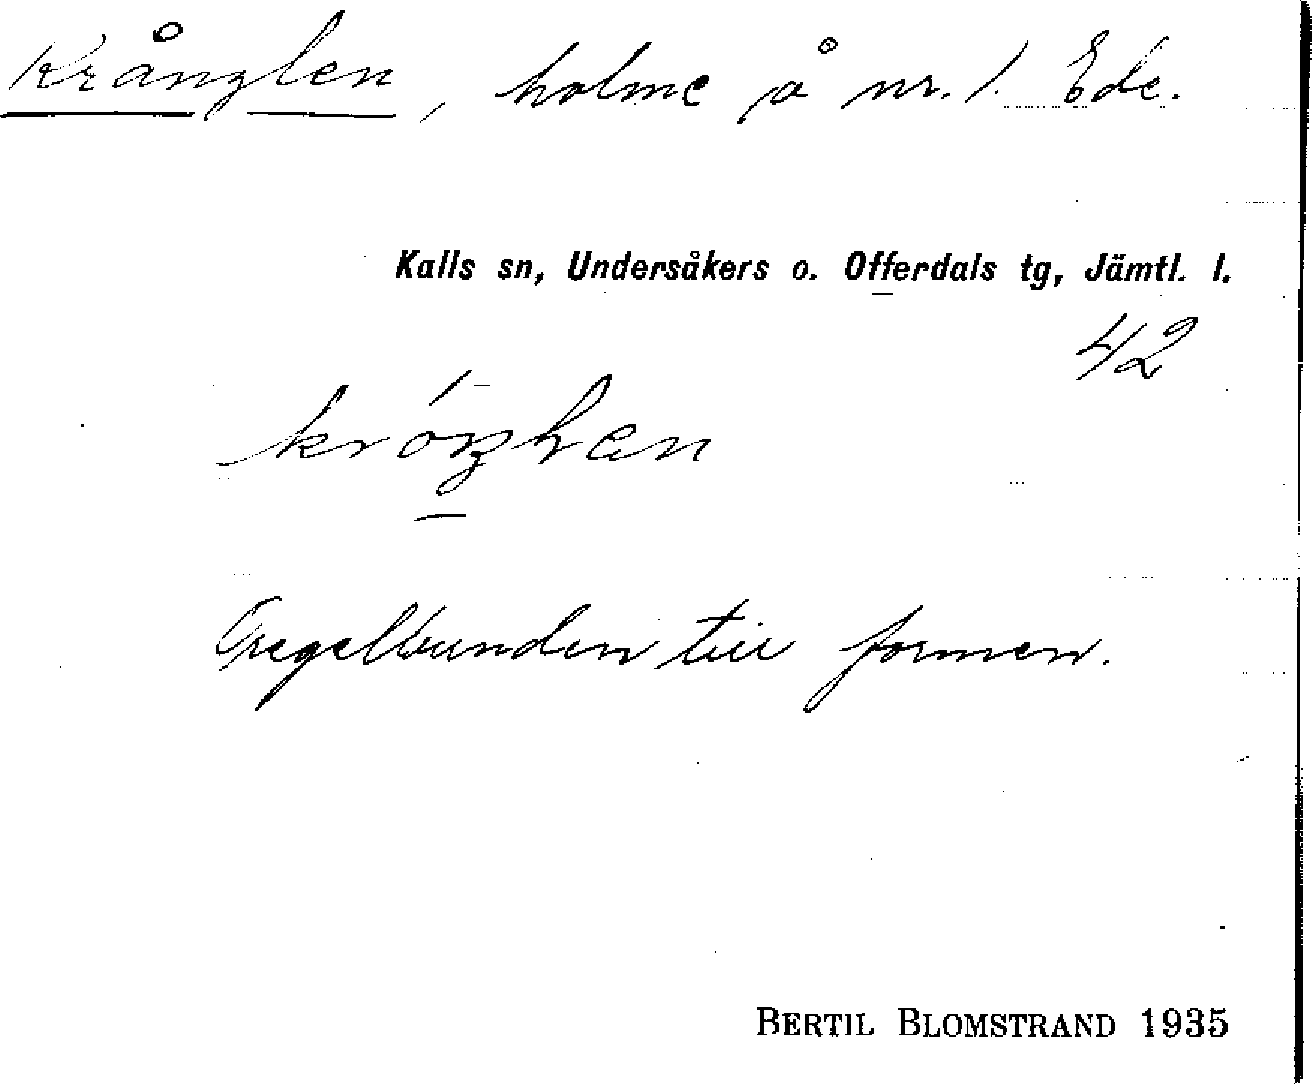 Krånglen, holme å nr. 1. Ede.
Kalls sn, Undersåkers o. Offerdals tg, Jämtl. l.
42
Oregelbunden till formen.
BERTIL BLOMSTRAND 1935